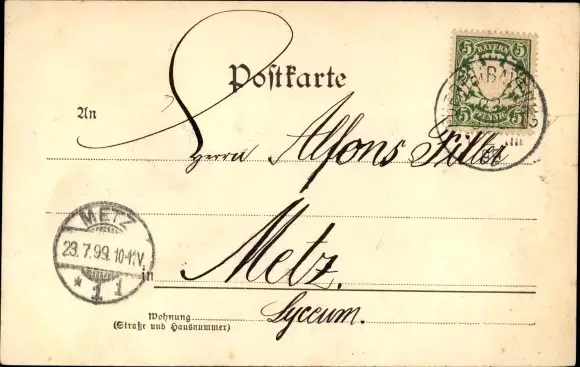 5 BAYERN 5
5 PFENNIG 5
Postkarte
An
Herrn Alfons
METZ
23.7.99. 10-11V.
* 1 1
in Metz.
Wohnung
(Straße und Hausnummer)
Lyceum.